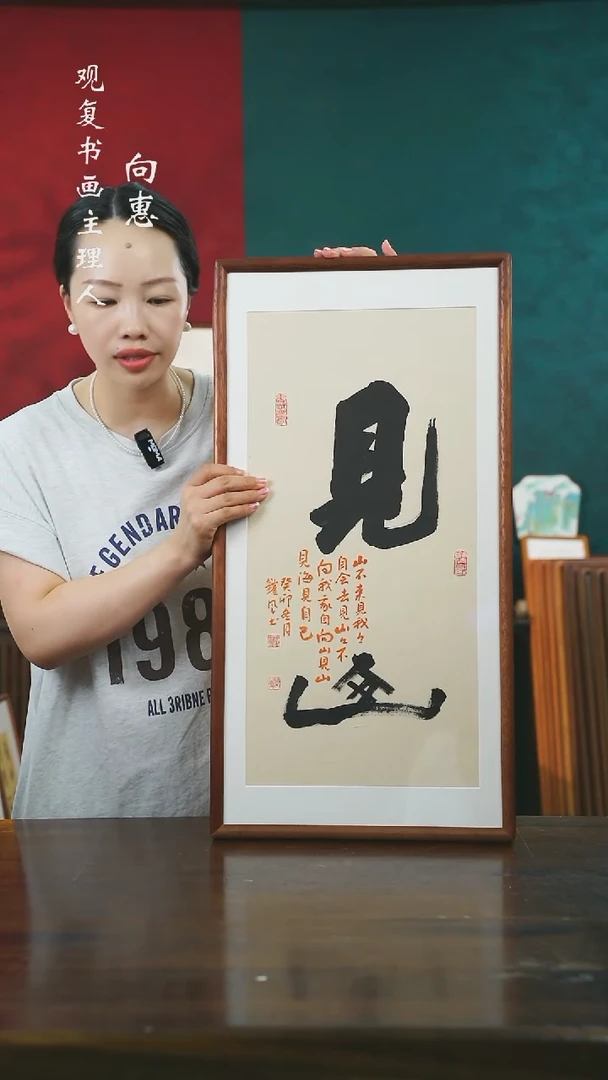 观复书画主理人
向惠
見山
山不来見我々
自会去見山々不
向我自向山見山
見海見自己
癸卯月
风书
EGENDAR
198
ALL 3RIBNE